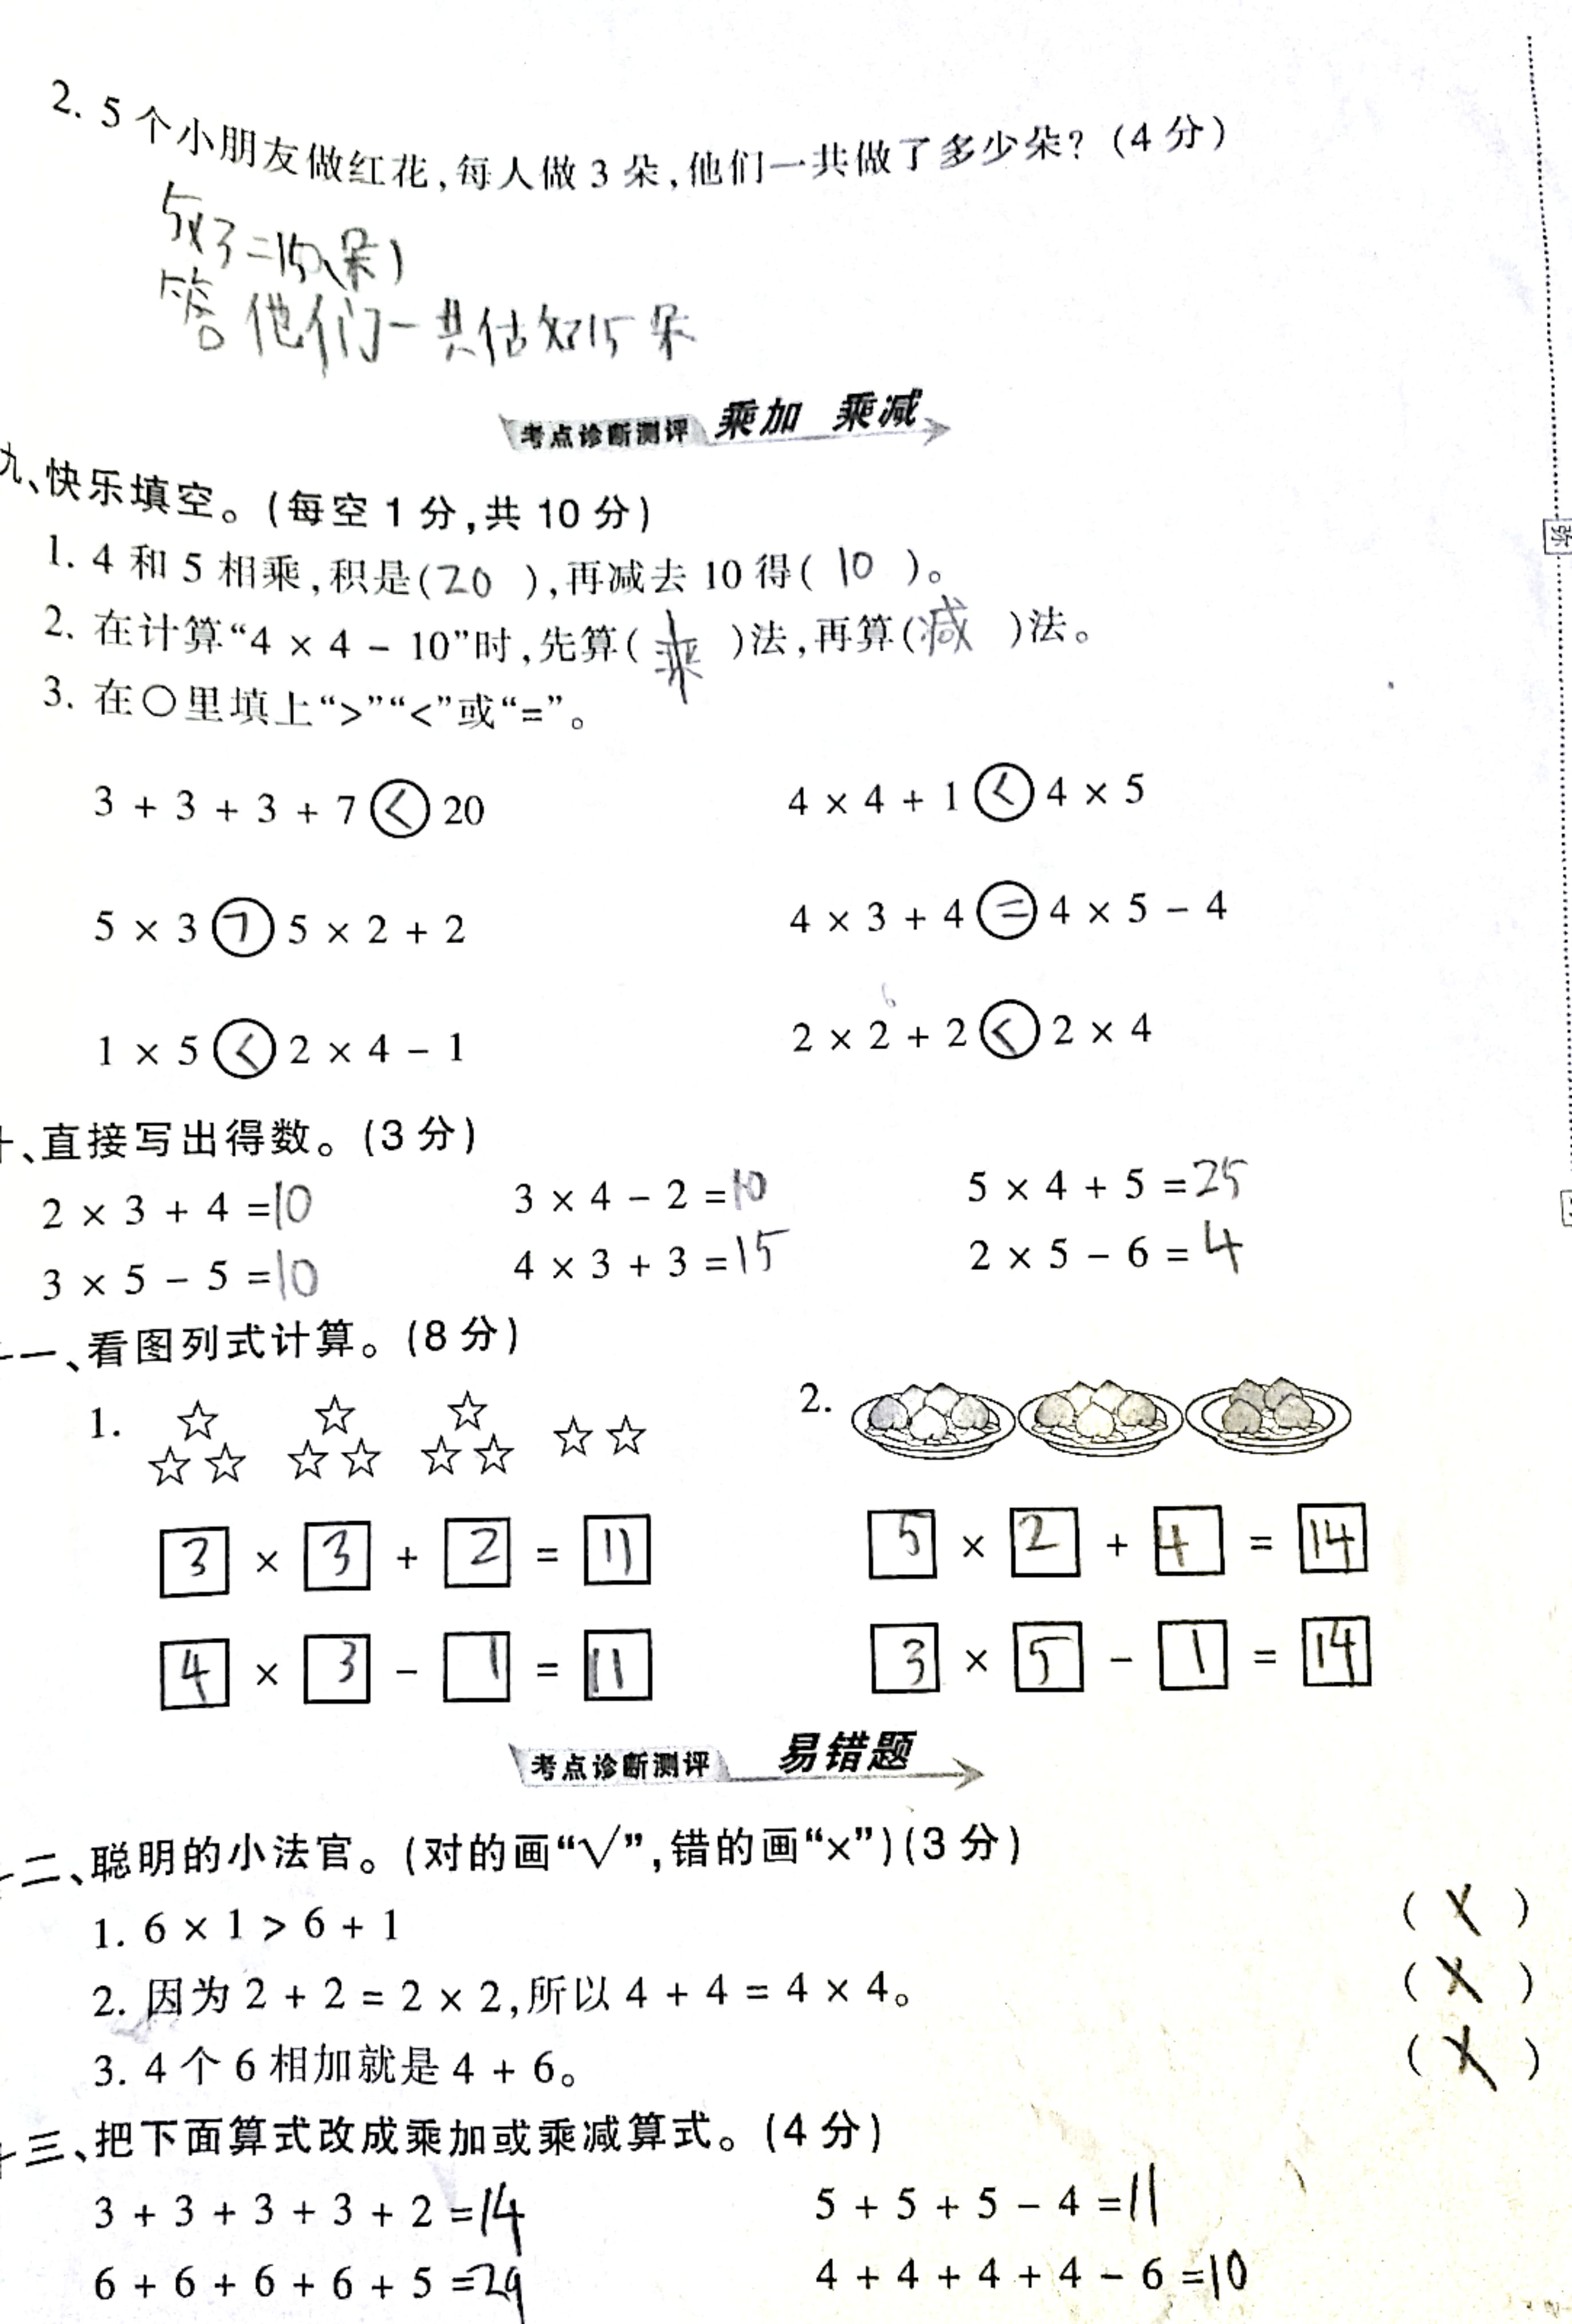 2. 5个小朋友做红花,每人做3朵,他们一共做了多少朵?(4分)
5×3=15(朵)
答他们一共估知15朵
考点诊断测评 乘加 乘减
九、快乐填空。(每空1分,共10分)
1. 4和5相乘,积是(20),再减去10得(10)。
2. 在计算“4×4-10”时,先算(乘)法,再算(减)法。
3. 在○里填上“>”“<”或“=”。
3+3+3+7<20 4×4+1<4×5
5×3>5×2+2 4×3+4=4×5-4
6
1×5<2×4-1 2×2+2<2×4
十、直接写出得数。(3分)
2×3+4=10 3×4-2=10 5×4+5=25
3×5-5=10 4×3+3=15 2×5-6=4
十一、看图列式计算。(8分)
1. 2.
3×3+2=11 5×2+4=14
4×3-1=11 3×5-1=14
考点诊断测评 易错题
十二、聪明的小法官。(对的画“√”,错的画“×”)(3分)
1. 6×1>6+1 (×)
2. 因为2+2=2×2,所以4+4=4×4。 (×)
3. 4个6相加就是4+6。 (×)
十三、把下面算式改成乘加或乘减算式。(4分)
3+3+3+3+2=14 5+5+5-4=11
6+6+6+6+5=29 4+4+4+4-6=10